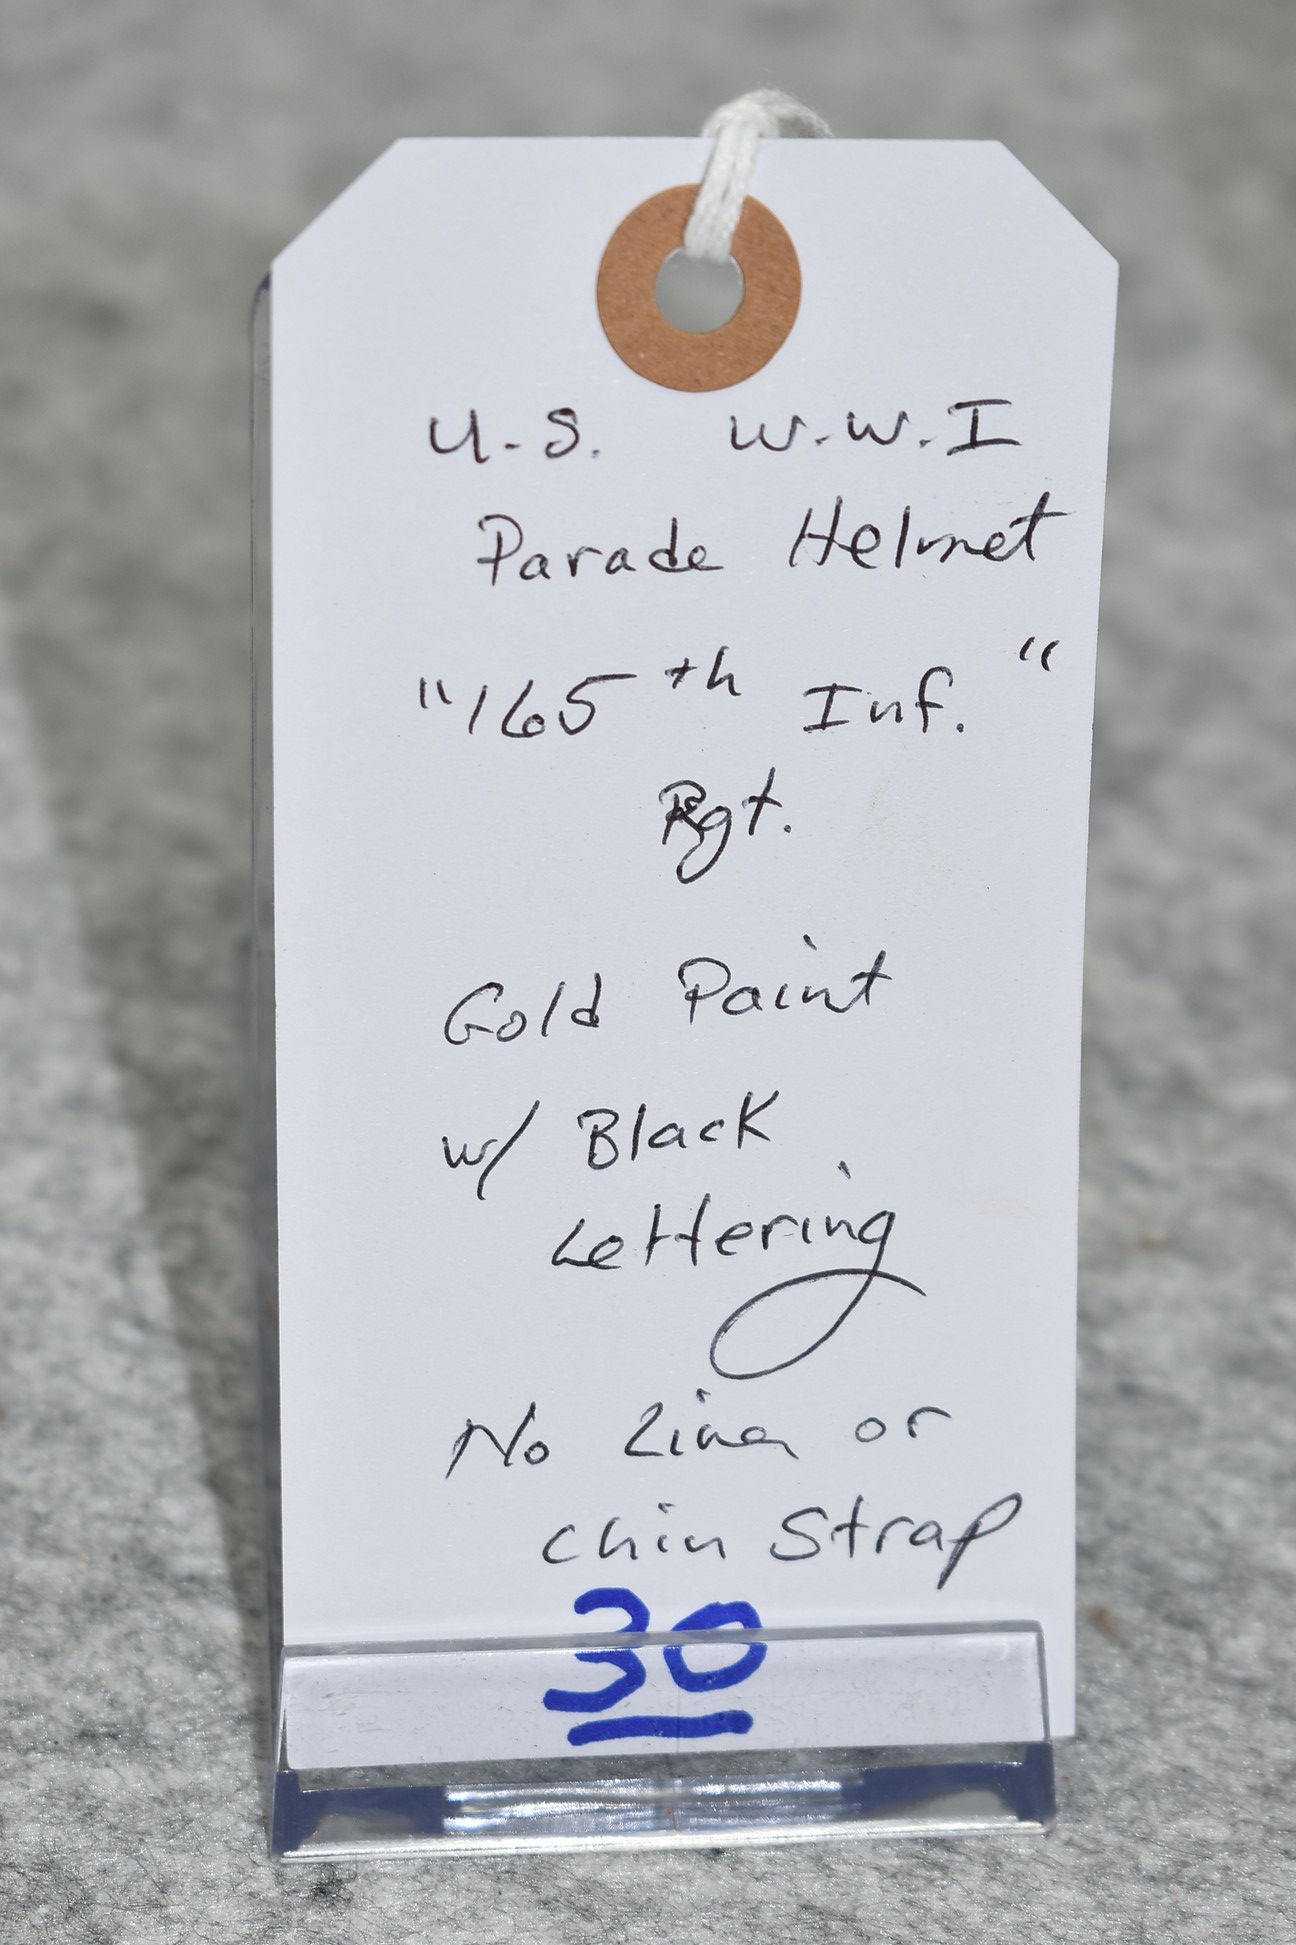 U.S. W.W.I
Parade Helmet
"165th Inf."
Rgt.
Gold Paint
w/ Black
Lettering
No Liner or
Chin Strap
30